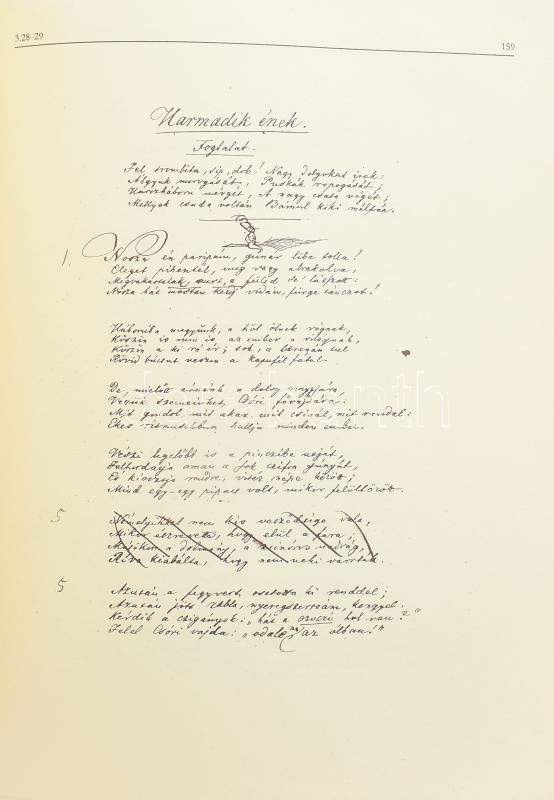 3.28–29
159
Harmadik ének.
Foglalat.
Fel trombita, síp, dob! Nagy dolgokat írok:
Álgyuk morgását, Puskák ropogását;
Harczháboru mérgét, A nagy csata végét;
Mellyek csuda voltán Bámul kiki méltán.
1.
Nosza én paripám, gunár liba tolla!
Eleget pihentél, meg vagy abrakolva,
Megvakartalak, mert a füled se' látszott:
Nosza hát mostan kezdj vidám, fürge tánczot!
Háboruba megyünk, a hol ölnek vágnak,
Köszön is nem is, az ember a világnak,
a ki rá ér; sok, a
Rövid búcsut veszen a kapufél fától.
De, mielőtt érnénk a dolog nagyjára,
Vessük szemeinket, Csóri fővajdára:
Mit gondol, mit akar, mit csinál, mit rendel:
Ékes ritmusokban hallja minden ember.
Vészi legelőbb is a pinczibe útját,
Felturdalja aman a sok czifra gunyát,
És kiosztja rendre, vitéz népe között;
Mind egy-egy pipacs volt, mikor felöltözött.
5
Némelyikkel nem kis vesződsége vala,
Mikor észrevette, hogy elül a fara;
Másikon a dolmány, a zsinóros nadrág,
Ríva kiabálta, hogy nem neki varrták.
5
Azután a fegyvert osztotta ki renddel;
Azután jött zabla, nyeregszerszám, kengyel.
Kérdik a czigányok: „hát a ozozó hol van?"
Felel Csóri vajda: „odale az ólban!"